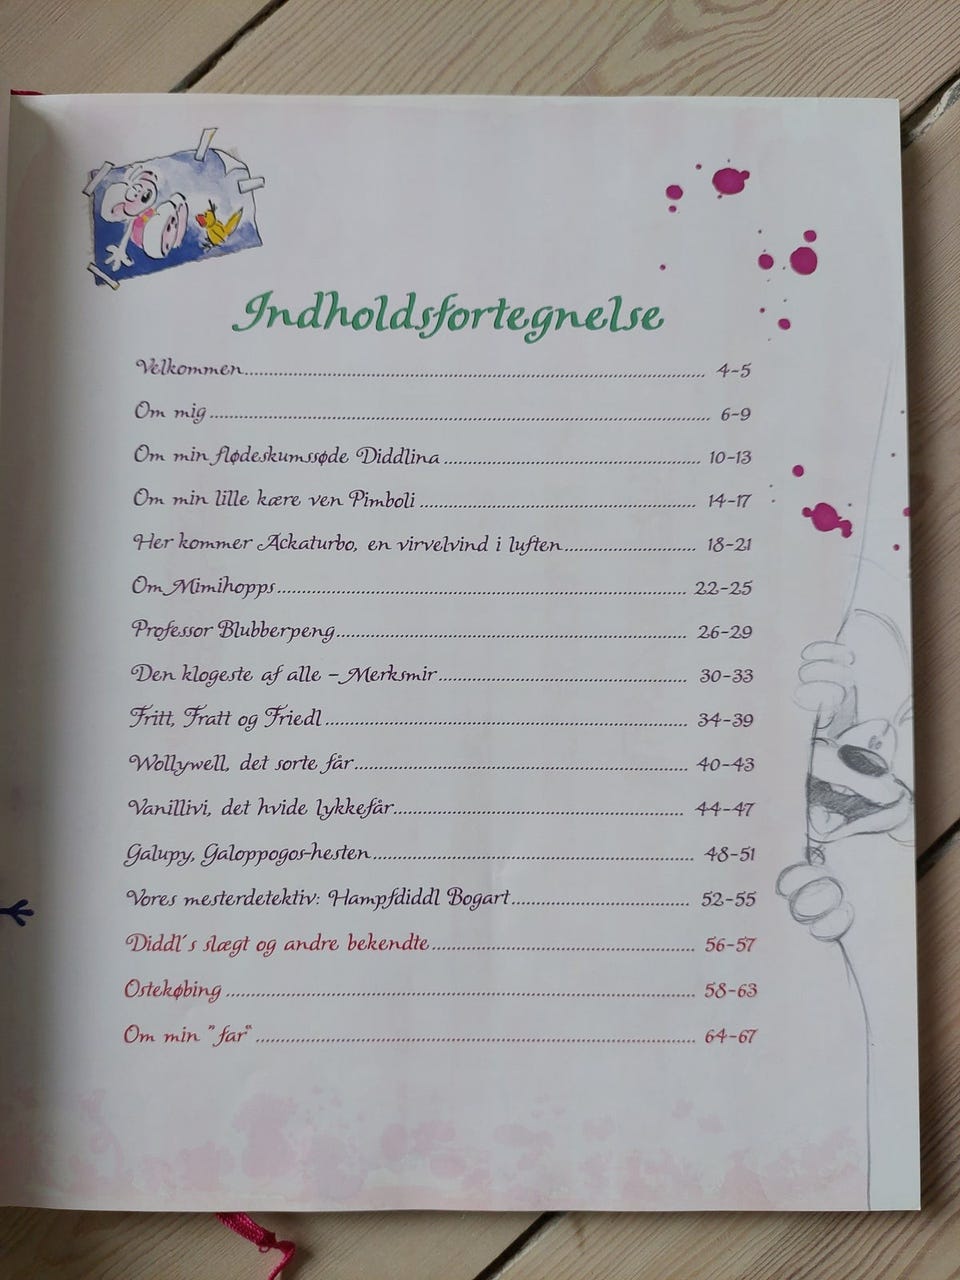 Indholdsfortegnelse
Velkommen.......... 4-5
Om mig.......... 6-9
Om min flødeskumssøde Diddlina.......... 10-13
Om min lille kære ven Pimboli.......... 14-17
Her kommer Ackaturbo, en virvelvind i luften.......... 18-21
Om Mimihopps.......... 22-25
Professor Blubberpeng.......... 26-29
Den klogeste af alle – Merksmir.......... 30-33
Fritt, Fratt og Friedl.......... 34-39
Wollywell, det sorte får.......... 40-43
Vanillivi, det hvide lykkefår.......... 44-47
Galupy, Galoppogos-hesten.......... 48-51
Vores mesterdetektiv: Hampfdiddl Bogart.......... 52-55
Diddl´s slægt og andre bekendte.......... 56-57
Ostekøbing.......... 58-63
Om min "far".......... 64-67